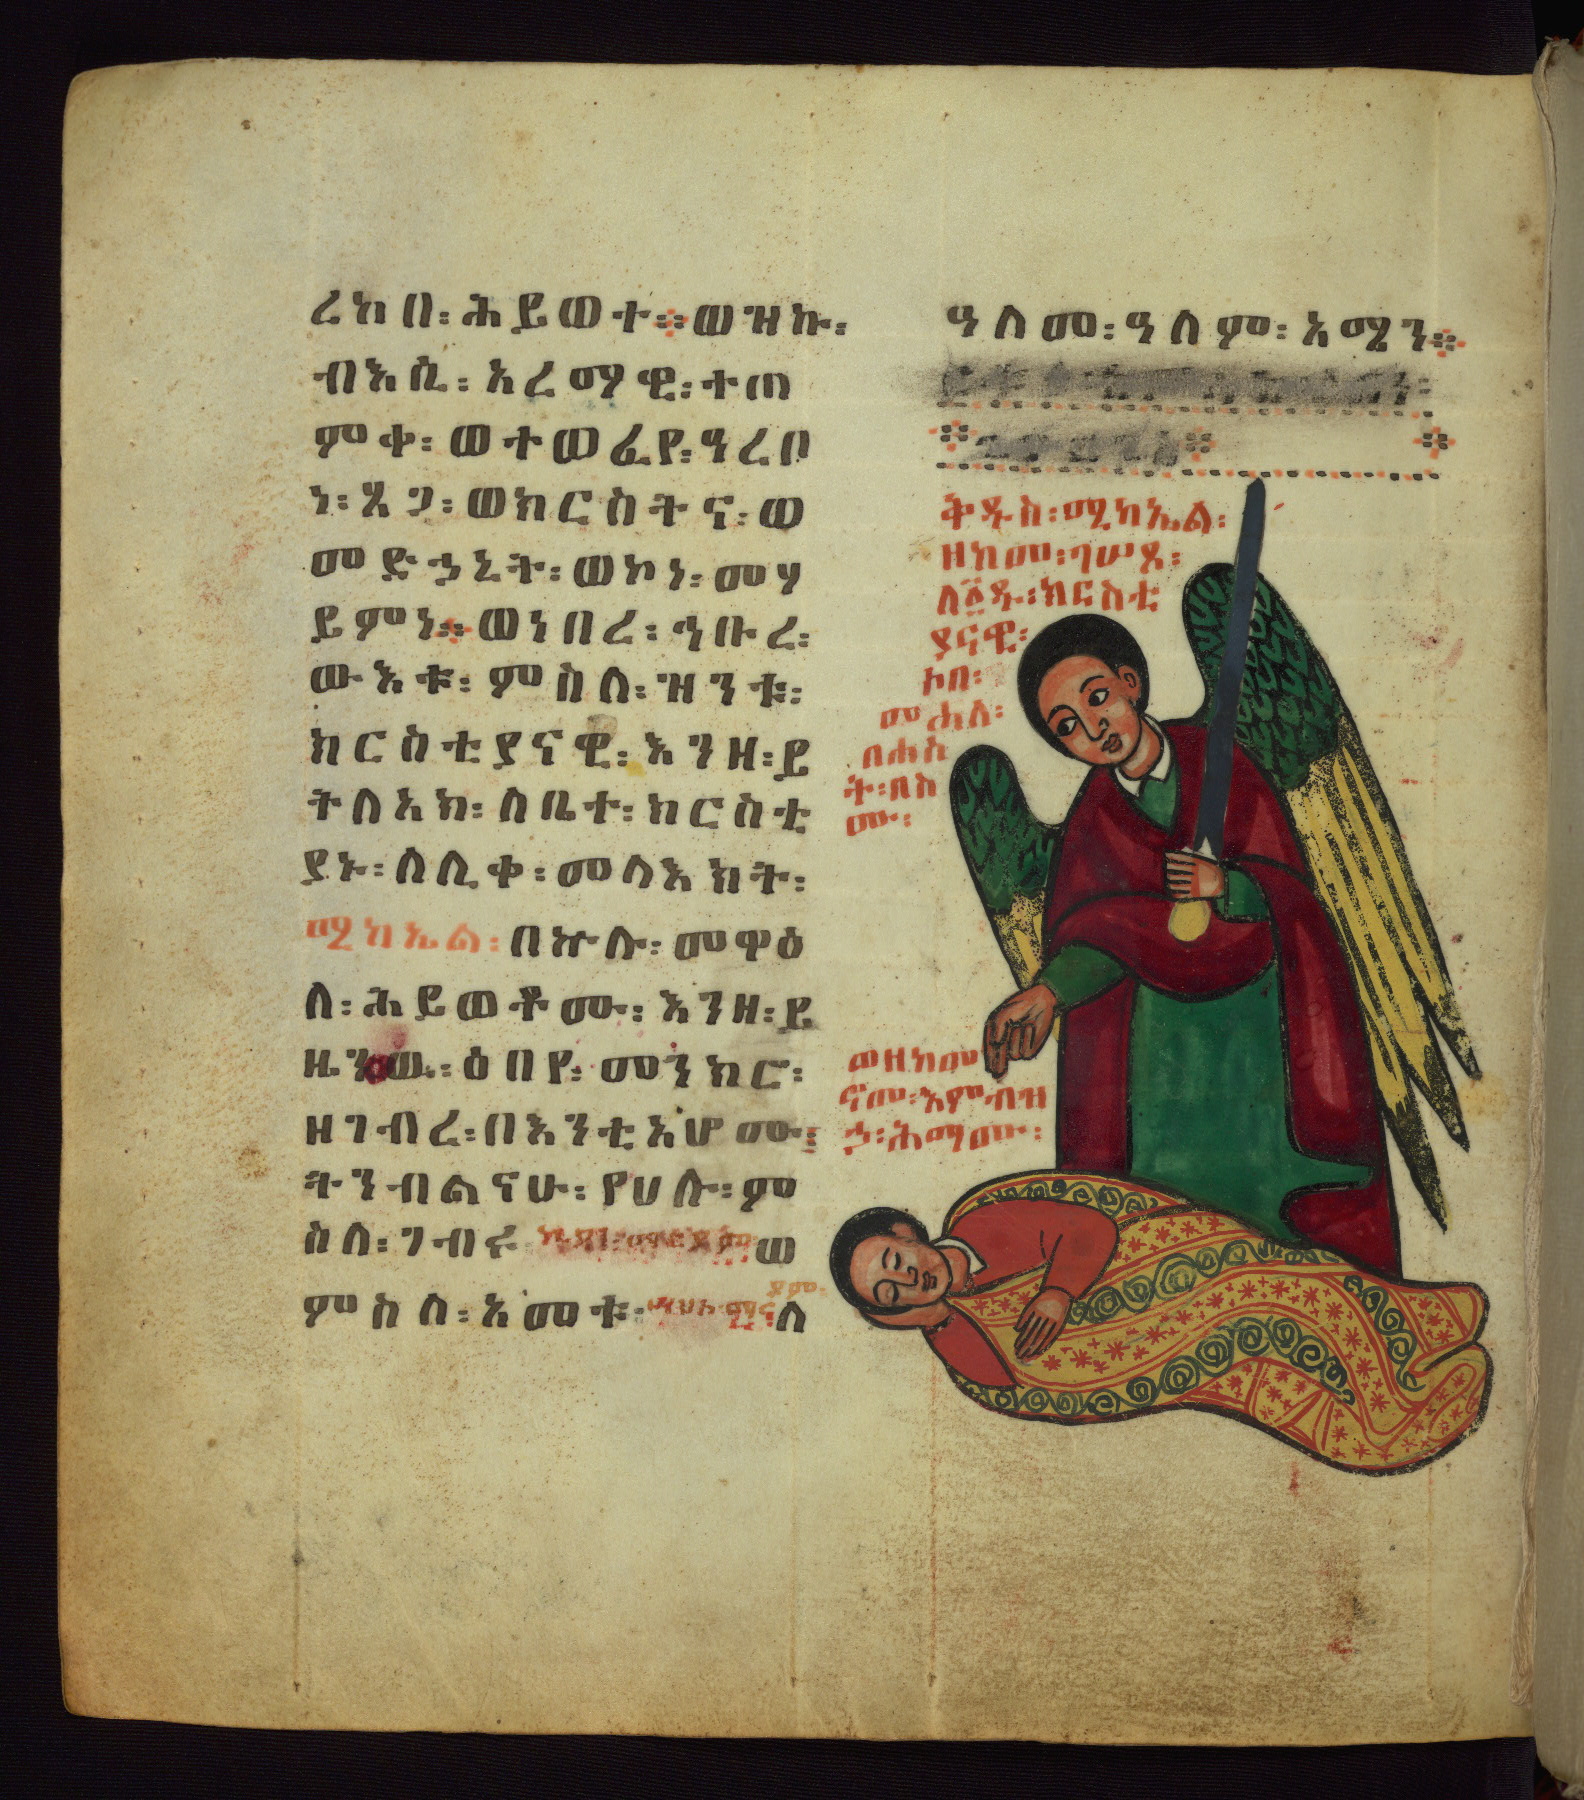 ረከበ፡ ሕይወተ፨ ወዝኩ፡
ብእሲ፡ አረማዊ፡ ተጠ
ምቀ፡ ወተወፈየ፡ ዓረቦ
ነ፡ ጸጋ፡ ወክርስትና፡ ወ
መድኃኒት፡ ወኮነ፡ መሃ
ይምነ፨ ወነበረ፡ ኅቡረ፡
ውእቱ፡ ምስለ፡ ዝንቱ፡
ክርስቲያናዊ፡ እንዘ፡ ይ
ትለአክ፡ ለቤተ፡ ክርስቲ
ያኑ፡ ለሊቀ፡ መላእክት፡
ሚካኤል፡ በኵሉ፡ መዋዕ
ለ፡ ሕይወቶሙ፡ እንዘ፡ ይ
ዜንዉ፡ ዕበየ፡ መንክር፡
ዘገብረ፡ በእንቲአሆሙ፡
ትንብልናሁ፡ የሀሉ፡ ም
ስለ፡ ገብሩ ወ
ምስለ፡ አመቱ፡ ለ
ዓለመ፡ ዓለም፡ አሜን፨
ቅዱስ፡ ሚካኤል፡
ዘከመ፡ ገሠጸ፡
ለ፩ዱ፡ ክርስቲ
ያናዊ፡
ኀበ፡
መሐለ፡
በሐሰ
ት፡ በስ
ሙ፡
ወዘከመ
ኖመ፡ እምብዝ
ኃ፡ ሕማሙ፡